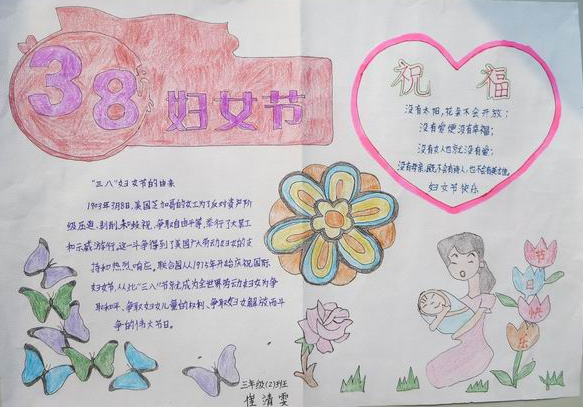 38
妇女节
祝福
没有太阳,花朵不会开放;
没有爱便没有幸福;
没有女人也就没有爱;
没有母亲,既不会有诗人,也不会有英雄。
妇女节快乐
"三八"妇女节的由来
1903年3月8日,美国芝加哥的女工为了反对资产阶
级压迫、剥削和歧视,争取自由平等,举行了大罢工
和示威游行,这一斗争得到了美国广大劳动妇女的支
持和热烈响应,联合国从1975年开始庆祝国际
妇女节,从此"三八"节就成为全世界劳动妇女为争
取和平、争取妇女儿童的权利、争取妇女解放而斗
争的伟大节日。
节
日
快
乐
三年级(2)班
崔清雯